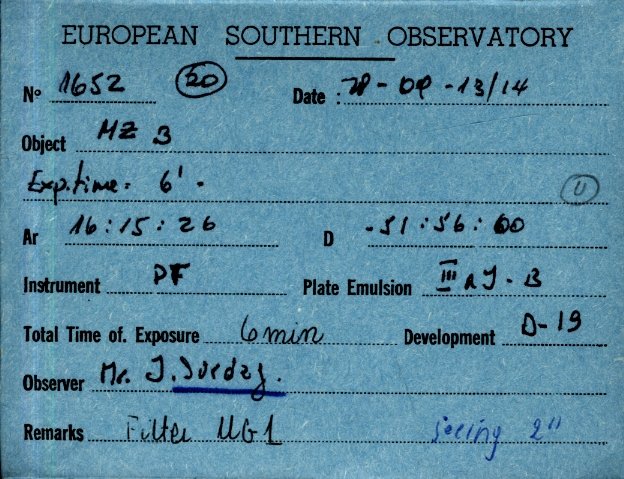 EUROPEAN SOUTHERN OBSERVATORY
N° 1652 (20) Date : 78-09-13/14
Object MZ 3
Exp.time: 6' - (U)
Ar 16:15:26 D -51:56:00
Instrument PF Plate Emulsion III a J - B
Total Time of. Exposure 6 min Development D-19
Observer Mr. J. Surdej.
Remarks Filter UG1 seeing 2"